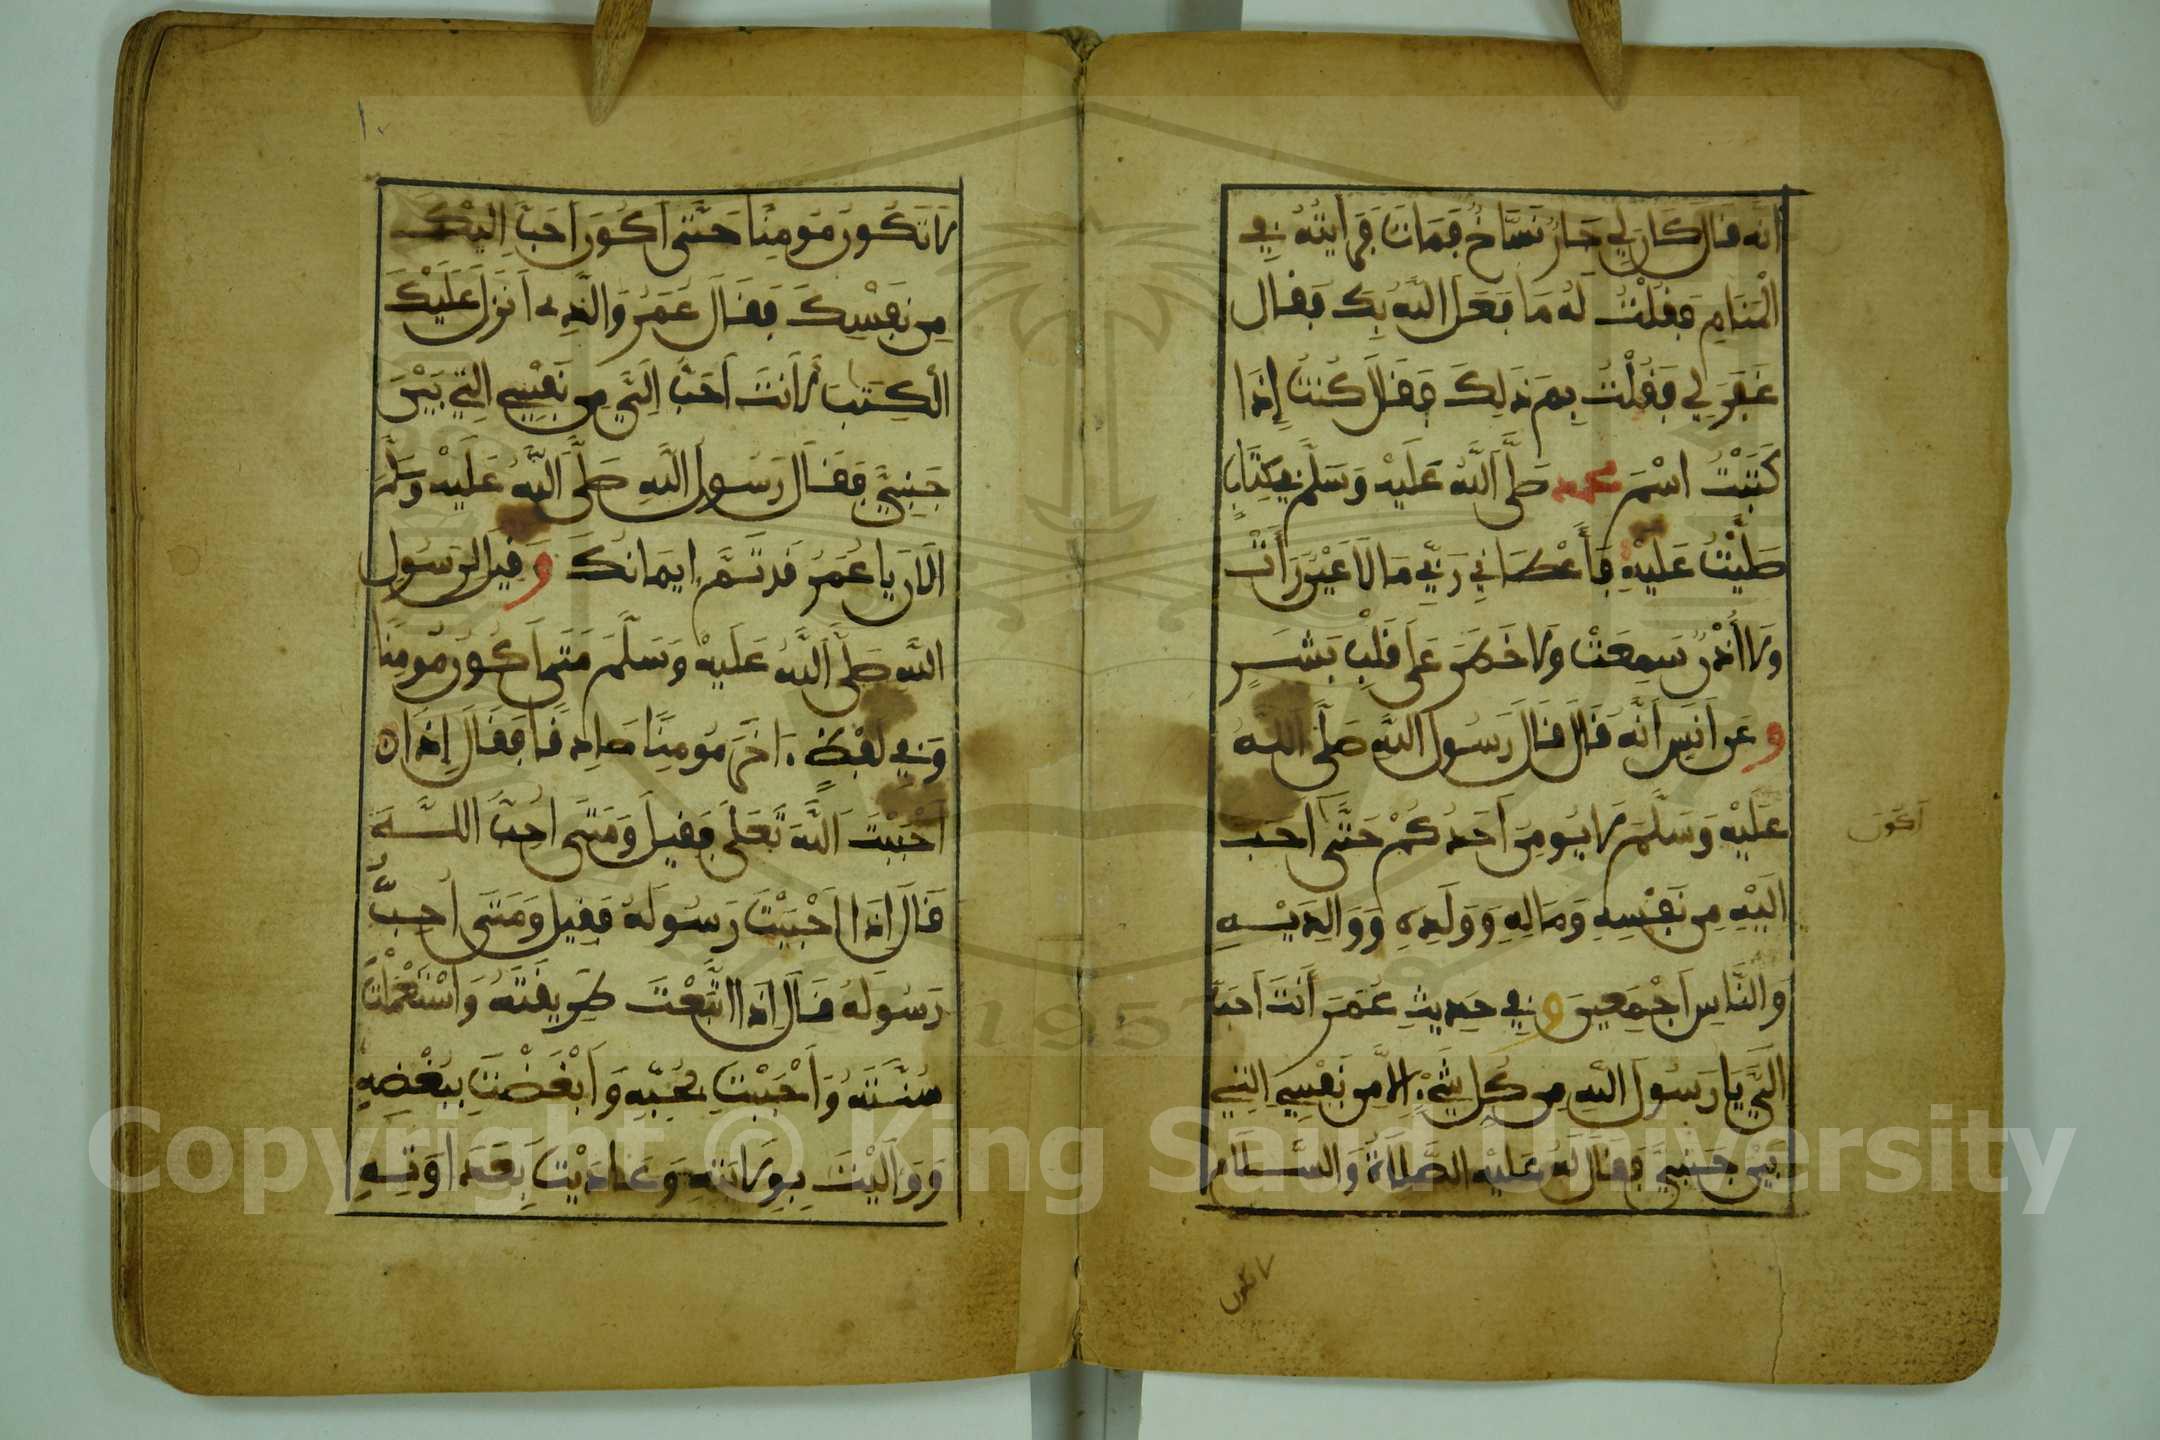 أَنَّهُ قَالَ كَانَ لِي جَارٌ نَسَّاخٌ فَمَاتَ فَرَأَيْتُهُ فِي
الْمَنَامِ فَقُلْتُ لَهُ مَا فَعَلَ اللَّهُ بِكَ فَقَالَ
غَفَرَ لِي فَقُلْتُ بِمَ ذَلِكَ فَقَالَ كُنْتُ إِذَا
كَتَبْتُ اسْمَ محمد صَلَّى اللَّهُ عَلَيْهِ وَسَلَّمَ فِي كِتَابٍ
صَلَّيْتُ عَلَيْهِ فَأَعْطَانِي رَبِّي مَا لَا عَيْنٌ رَأَتْ
وَلَا أُذُنٌ سَمِعَتْ وَلَا خَطَرَ عَلَى قَلْبِ بَشَرٍ
وَعَنْ أَنَسٍ أَنَّهُ قَالَ قَالَ رَسُولُ اللَّهِ صَلَّى اللَّهُ
عَلَيْهِ وَسَلَّمَ لَا يُومِنُ أَحَدُكُمْ حَتَّى أَحَبَّ
أكون
إِلَيْهِ مِن نَفْسِهِ وَمَالِهِ وَوَلَدِهِ وَوَالِدَيْهِ
وَالنَّاسِ أَجْمَعِينَ وَفِي حَدِيثِ عُمَرَ أَنْتَ أَحَبُّ
إِلَيَّ يَا رَسُولَ اللَّهِ مِن كُلِّ شَيْءٍ إِلَّا مِن نَفْسِيَ الَّتِي
بَيْنَ جَنْبَيَّ فَقَالَ لَهُ عَلَيْهِ الصَّلَاةُ وَالسَّلَامُ
لا تكون
١٠
لَا تَكُونُ مُومِنًا حَتَّى أَكُونَ أَحَبَّ إِلَيْكَ
مِن نَفْسِكَ فَقَالَ عُمَرُ وَالَّذِي أَنْزَلَ عَلَيْكَ
الْكِتَبَ لَأَنْتَ أَحَبُّ إِلَيَّ مِن نَفْسِيَ الَّتِي بَيْنَ
جَنْبَيَّ فَقَالَ رَسُولُ اللَّهِ صَلَّى اللَّهُ عَلَيْهِ وَسَلَّمَ
الْآنَ يَا عُمَرُ قَدْ تَمَّ إِيمَانُكَ وَقِيلَ لِرَسُولِ
اللَّهِ صَلَّى اللَّهُ عَلَيْهِ وَسَلَّمَ مَتَى أَكُونُ مُومِنًا
وَفِي لَفْظٍ ءَاخَرَ مُومِنًا صَادِقًا فَقَالَ إِذَا
أَحْبَبْتَ اللَّهَ تَعَلَى فَقِيلَ وَمَتَى أُحِبُّ اللَّهَ
قَالَ إِذَا أَحْبَبْتَ رَسُولَهُ فَقِيلَ وَمَتَى أُحِبُّ
رَسُولَهُ قَالَ إِذَا اتَّبَعْتَ طَرِيقَتَهُ وَاسْتَعْمَلْتَ
سُنَّتَهُ وَأَحْبَبْتَ بِحُبِّهِ وَأَبْغَضْتَ بِبُغْضِهِ
وَوَالَيْتَ بِوِلَايَتِهِ وَعَادَيْتَ بِعَدَاوَتِهِ
Copyright © King Saud University
1957